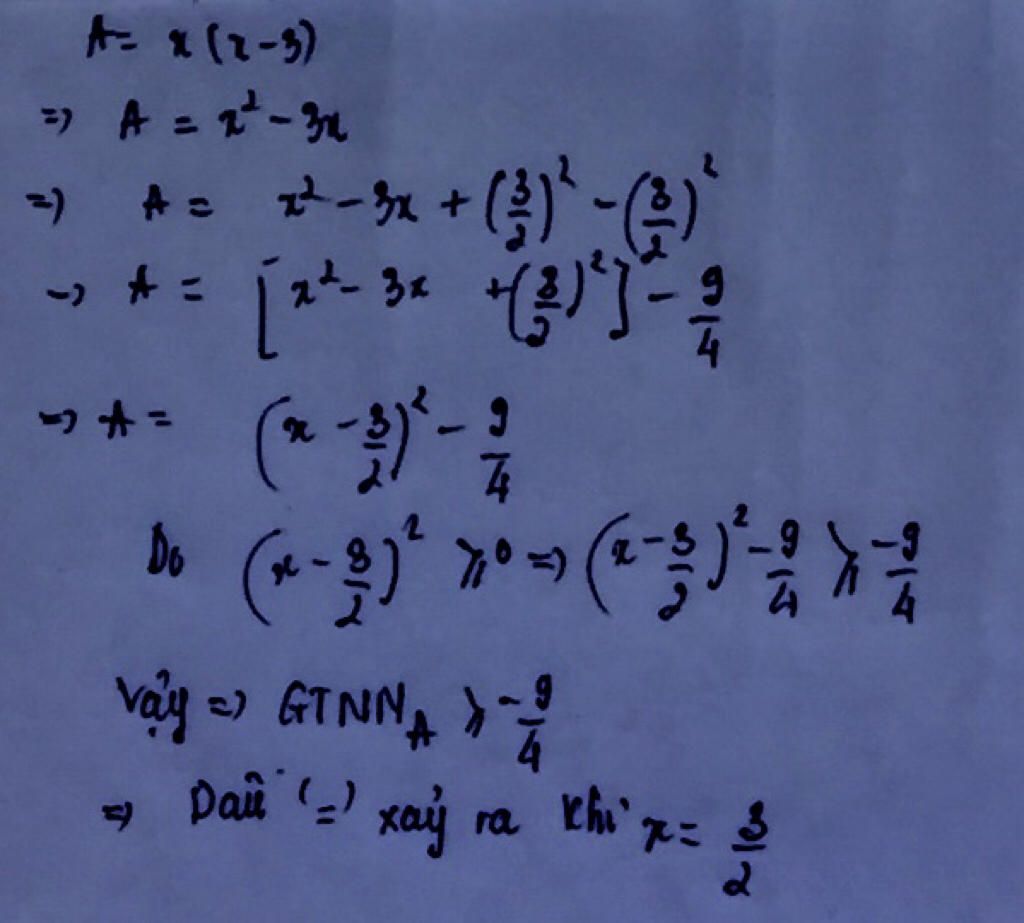 A = x(x-3)
=> A = x² - 3x
=> A = x² - 3x + (3/2)² - (3/2)²
-> A = [x² - 3x + (3/2)²] - 9/4
-> A = (x - 3/2)² - 9/4
Do (x - 3/2)² ⩾ 0 => (x - 3/2)² - 9/4 ⩾ -9/4
Vậy => GTNN_A ⩾ -9/4
=> Dấu (=) xảy ra khi x = 3/2